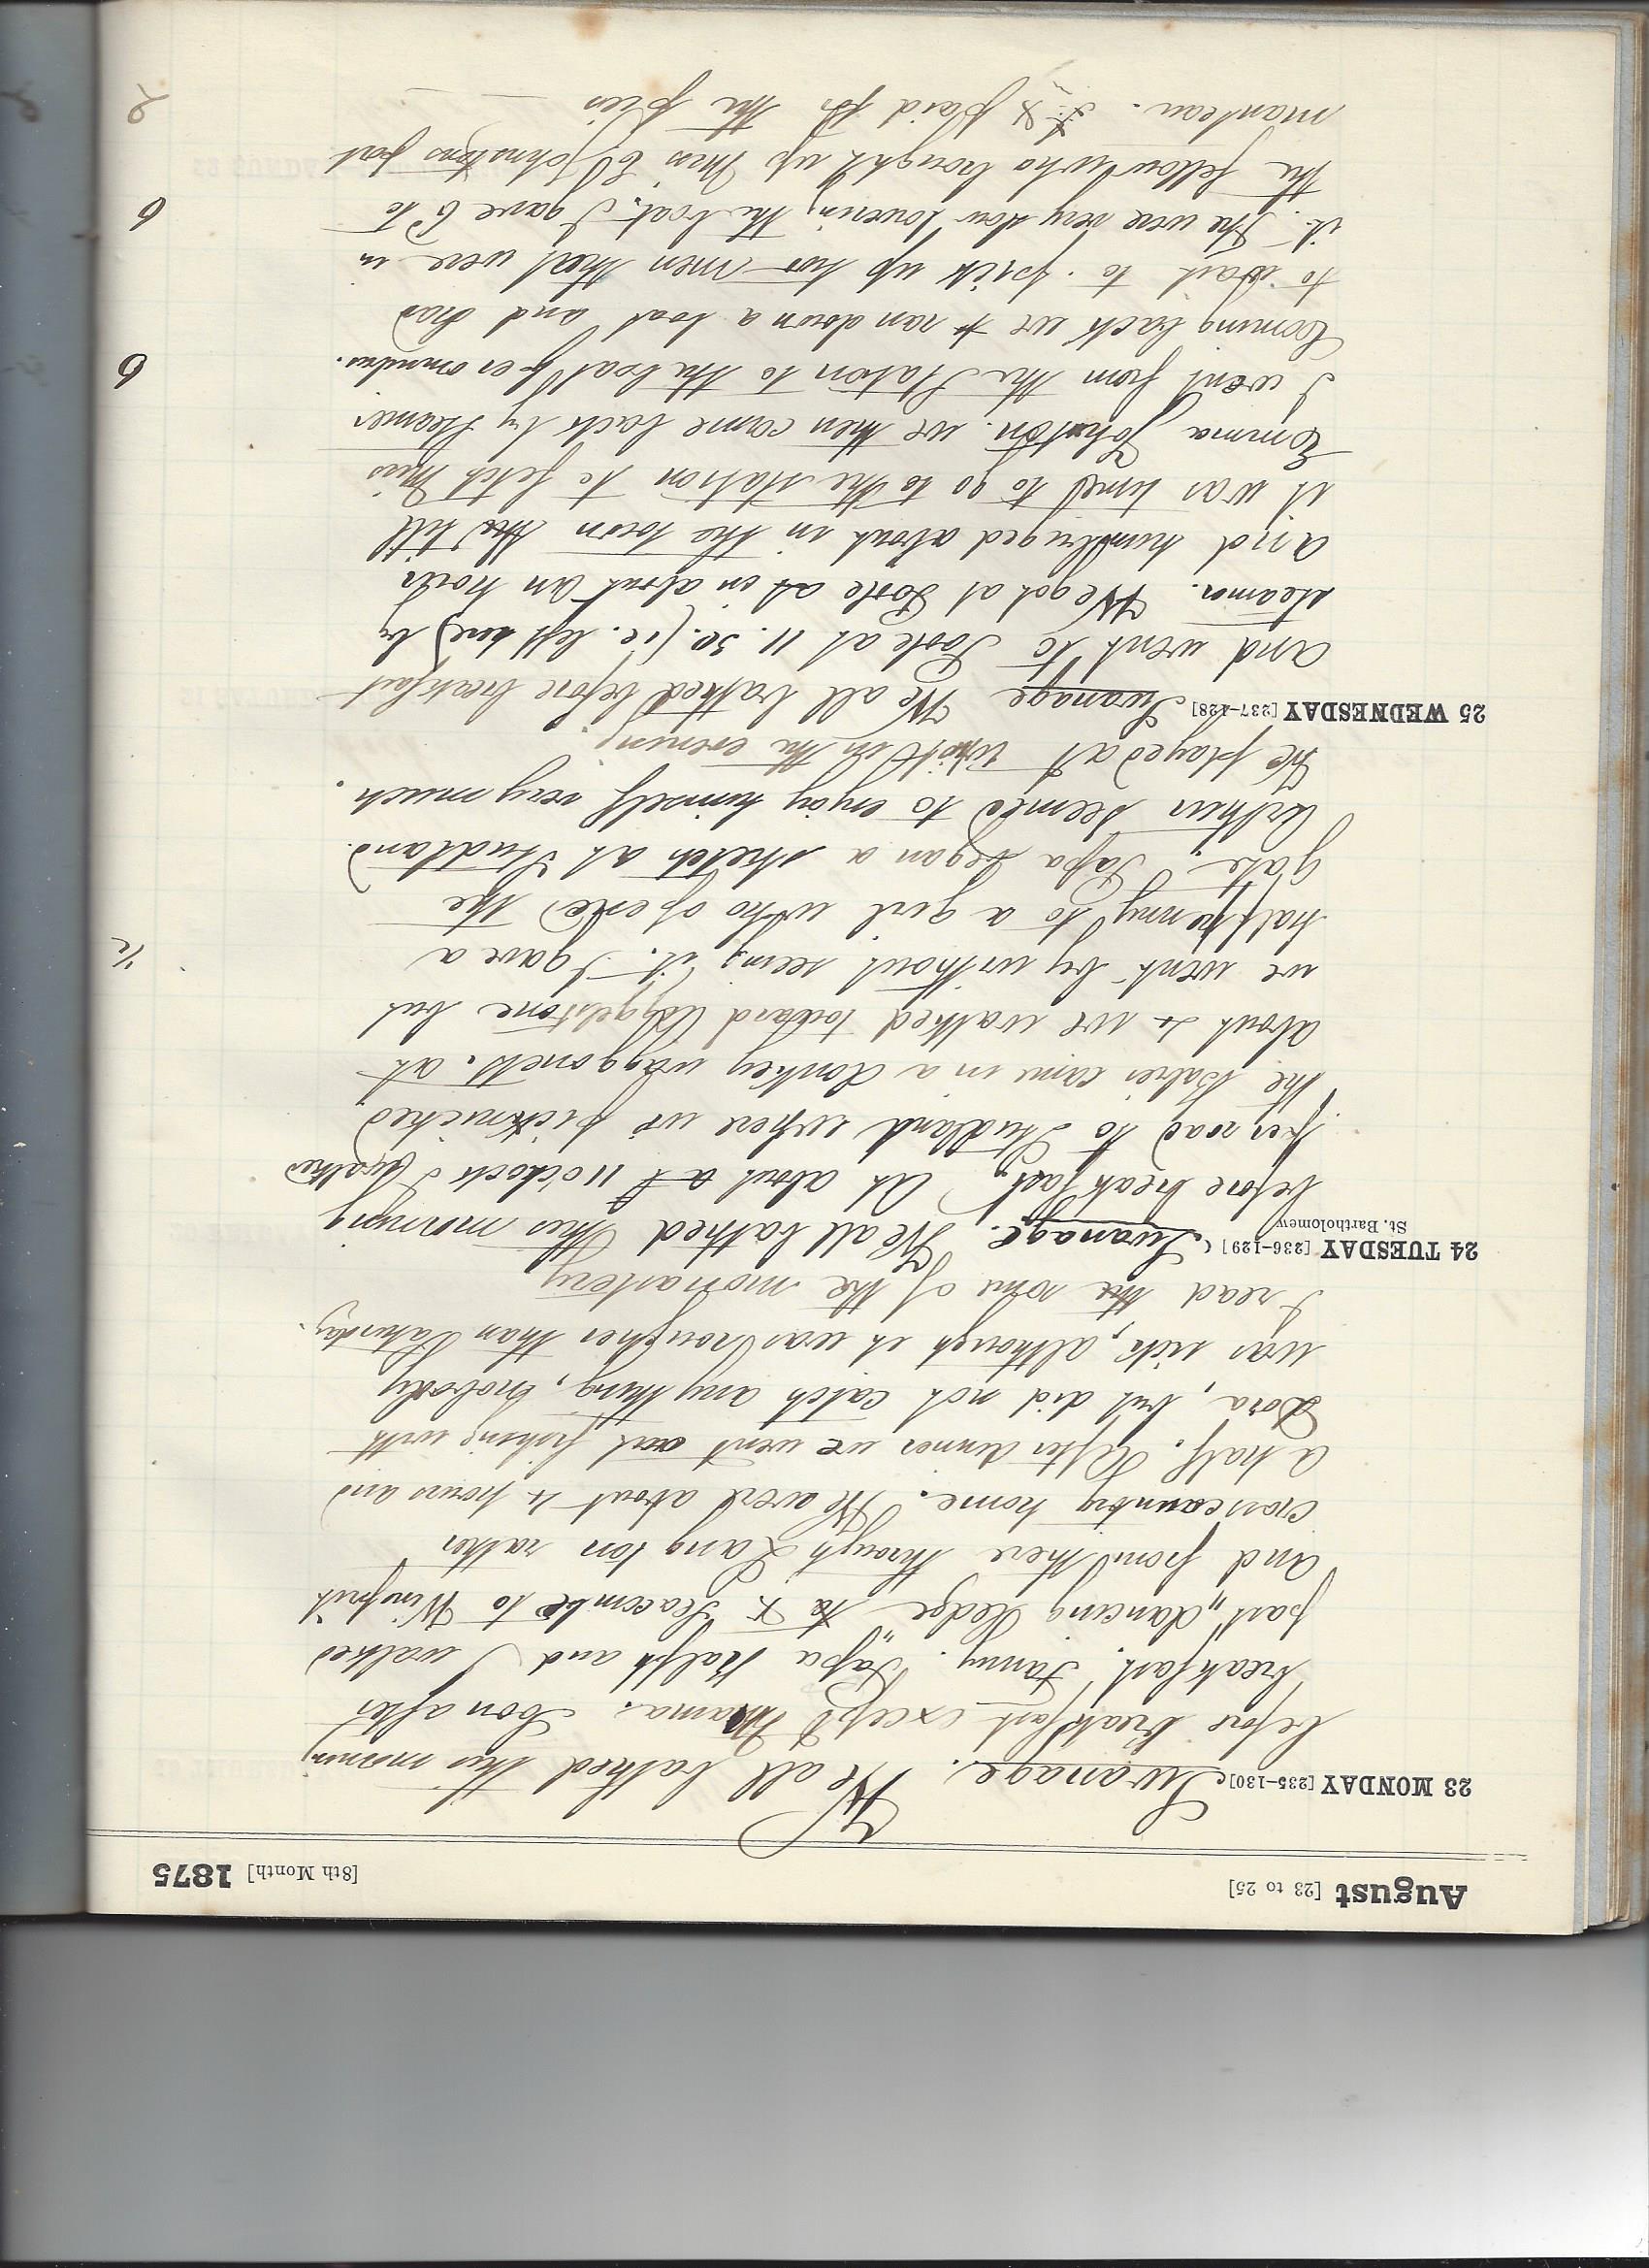 August [23 to 25] [8th Month] 1875
23 MONDAY [235-130] Swanage. We all bathed this morning
before breakfast except Mama. Soon after
breakfast. Fanny. Papa Ralph and I walked
past "dancing Ledge" to Seacombe to Winspit
and from there through Langton rather
crosscountry home. We were about 4 hours and
a half. After dinner we went out fishing with
Dora, but did not catch anything, nobody
was sick, although it was rougher than Saturday.
I read the of the monastery
24 TUESDAY [236-129] Swanage. We all bathed this morning
St. Bartholomew
before breakfast. At about at 11 o'clock I walked
per road to Studland where we picknicked
the babies came in a donkey waggonett. at
about 4 we walked toward Aggelstone but
we went by without seeing it. I gave a 1/2
halfpenny to a girl who opened the
gate. Papa began a sketch at Studland.
Arthur seemed to enjoy himself very much.
We played at Whist in the evening.
25 WEDNESDAY [237-128] Swanage We all bathed before breakfast
and went to Poole at 11.30. (i.e. left here) by
steamer. We got at Poole at in about an hour
and humbuged about in the town the till
it was timed to go to the station to fetch Miss
Emma Johnston. we then came back by steamer
I went from the Station to the boat per omnibus. 6
Coming back we ran down a boat and had
to wait to pick up two men that were in
it. We were very slow lowering the boat. I gave 6d to 6
the fellow who brought up Miss E Johnstons port
manteau. I paid for the pier 2